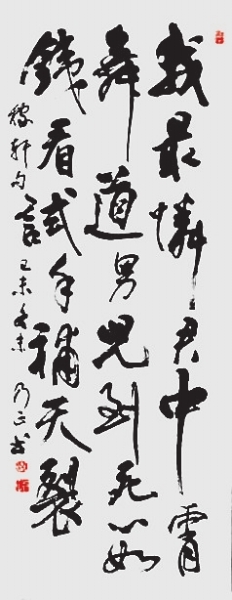 我最憐君中宵
舞道男兒到死心如
鐵看試手補天裂
稼軒句 己未冬末 乃正書